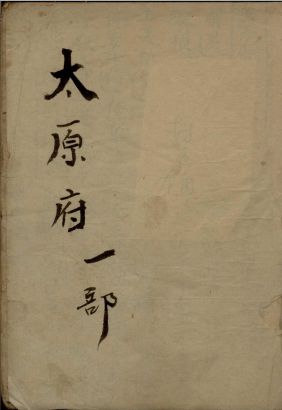 太原府一部